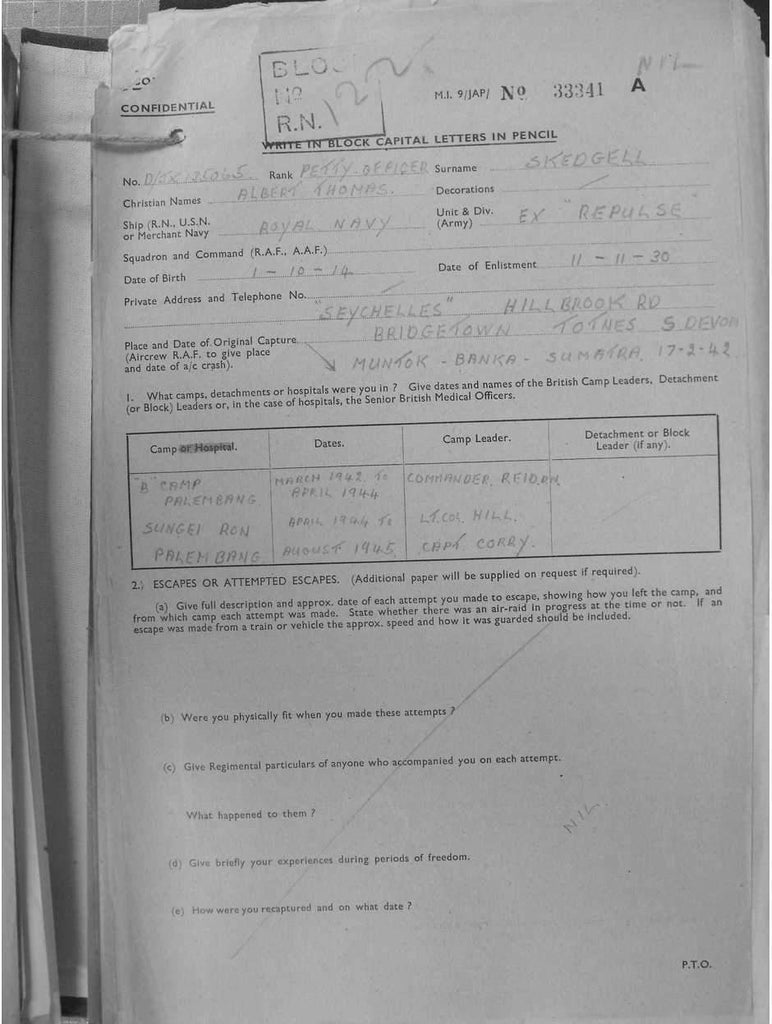 CONFIDENTIAL
BLO
No
R.N. 12
NIL
M.I. 9/JAP/ No 33341 A
WRITE IN BLOCK CAPITAL LETTERS IN PENCIL
No. D/JX 135065 Rank PETTY OFFICER Surname SKEDGELL
Christian Names ALBERT THOMAS. Decorations
Ship (R.N., U.S.N. or Merchant Navy ROYAL NAVY Unit & Div. (Army) EX "REPULSE"
Squadron and Command (R.A.F., A.A.F.)
Date of Birth 1 - 10 - 14 Date of Enlistment 11 - 11 - 30
Private Address and Telephone No.
"SEYCHELLES" HILLBROOK RD
BRIDGETOWN TOTNES S DEVON
Place and Date of Original Capture
(Aircrew R.A.F. to give place
and date of a/c crash). MUNTOK - BANKA - SUMATRA. 17-2-42
1. What camps, detachments or hospitals were you in ? Give dates and names of the British Camp Leaders, Detachment
(or Block) Leaders or, in the case of hospitals, the Senior British Medical Officers.
Camp or Hospital. Dates. Camp Leader. Detachment or Block Leader (if any).
"B" CAMP PALEMBANG MARCH 1942 To APRIL 1944 COMMANDER. REID.RN.
SUNGEI RON PALEMBANG APRIL 1944 To AUGUST 1945 LT.COL. HILL. CAPT. CORRY.
2. ESCAPES OR ATTEMPTED ESCAPES. (Additional paper will be supplied on request if required).
(a) Give full description and approx. date of each attempt you made to escape, showing how you left the camp, and
from which camp each attempt was made. State whether there was an air-raid in progress at the time or not. If an
escape was made from a train or vehicle the approx. speed and how it was guarded should be included.
(b) Were you physically fit when you made these attempts ?
(c) Give Regimental particulars of anyone who accompanied you on each attempt.
What happened to them ?
NIL
(d) Give briefly your experiences during periods of freedom.
(e) How were you recaptured and on what date ?
P.T.O.